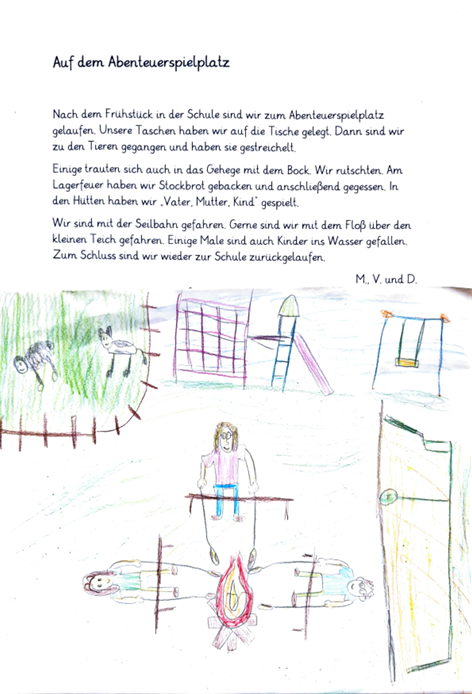 Auf dem Abenteuerspielplatz
Nach dem Frühstück in der Schule sind wir zum Abenteuerspielplatz
gelaufen. Unsere Taschen haben wir auf die Tische gelegt. Dann sind wir
zu den Tieren gegangen und haben sie gestreichelt.
Einige trauten sich auch in das Gehege mit dem Bock. Wir rutschten. Am
Lagerfeuer haben wir Stockbrot gebacken und anschließend gegessen. In
den Hütten haben wir „Vater, Mutter, Kind" gespielt.
Wir sind mit der Seilbahn gefahren. Gerne sind wir mit dem Floß über den
kleinen Teich gefahren. Einige Male sind auch Kinder ins Wasser gefallen.
Zum Schluss sind wir wieder zur Schule zurückgelaufen.
M., V. und D.